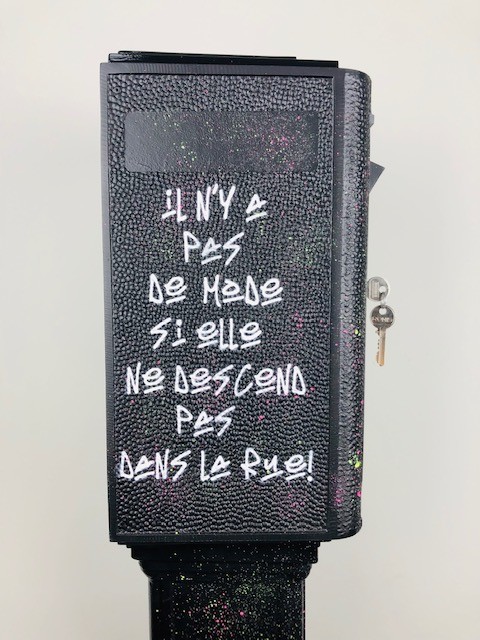 iL N'Y A
PAS
De MODe
Si elle
Ne DesCeND
PAS
DANS LA Rue!